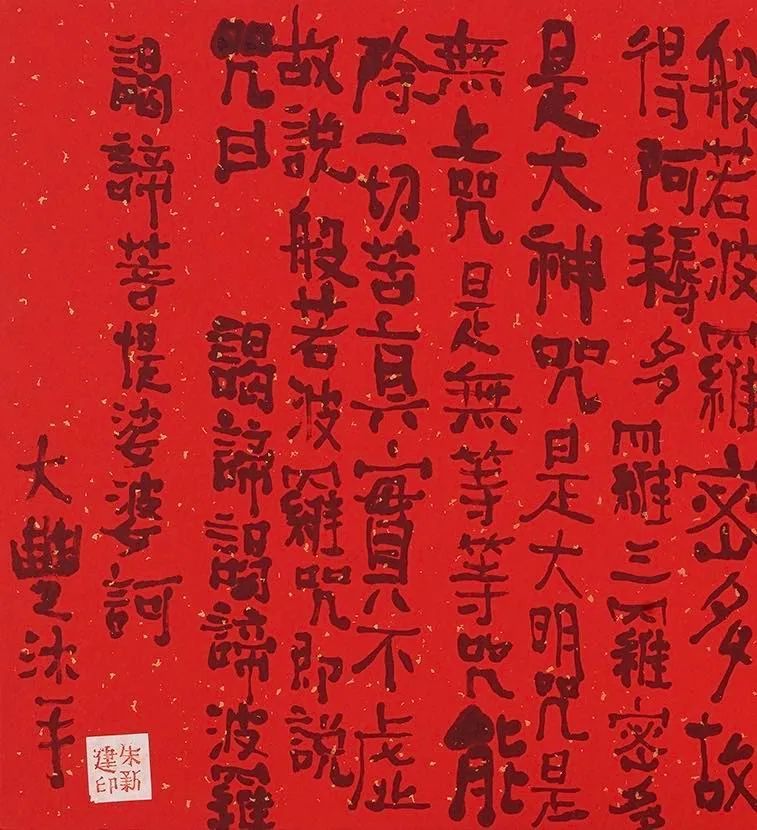 般若波羅密多故
得阿耨多羅三羅密多
是大神咒是大明咒是
無上咒是無等等咒能
除一切苦真實不虛
故說般若波羅咒即說
咒曰 謁諦謁諦波羅
謁諦菩提娑婆訶
大豐沐手
朱新建印